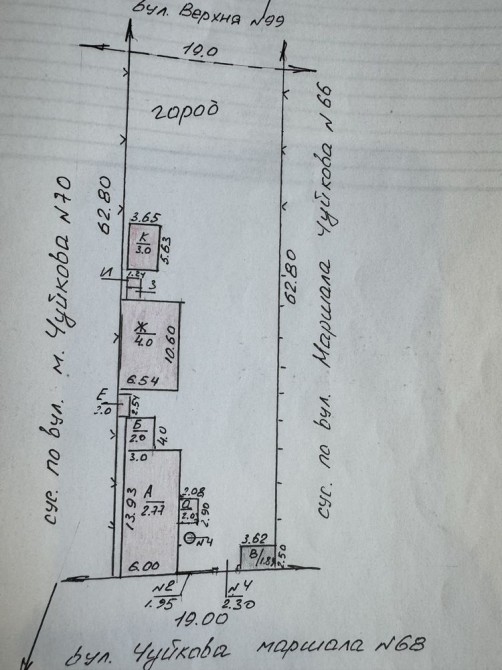 вул. Верхна №99
19.0
город
сус. по вул. м. Чуйкова №70
62.80
3.65
К
3.0
5.63
И
1.24
3
Ж
4.0
10.60
6.54
Е
2.0
2.54
Б
2.0
4.0
3.0
13.93
А
2.77
2.08
2.0
2.90
№4
6.00
3.62
В/1.85
2.50
№2
1.95
№4
2.30
19.00
62.80
сус. по вул. Маршала Чуйкова №66
вул. Чуйкова маршала №68